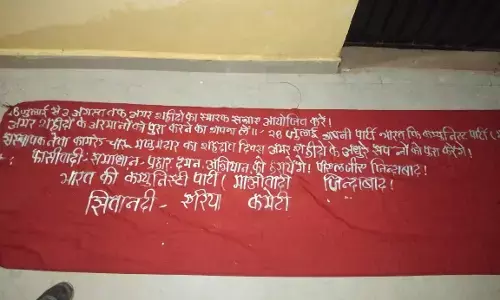 28 जुलाई से 3 अगस्त तक अमर शहीदों का स्मारक सप्ताह आयोजित करें!
अमर शहीदों के अरमानों को पुरा करने का शपथ लें॥ 28 जुलाई अपनी पार्टी भारत कि कम्युनिस्ट पार्टी (
संस्थापक नेता कामरेड चारू मजुमदार का शहादत दिवस अमर शहीदों के अधुरे सपनों को पुरा करेंगे!
फासीवादी- समाधान- प्रहार दमन अभियान को हरायेंगे!
भारत की कम्युनिस्ट पार्टी (माओवादी) जिन्दाबाद!
सितानदी - एरिया कमेटी